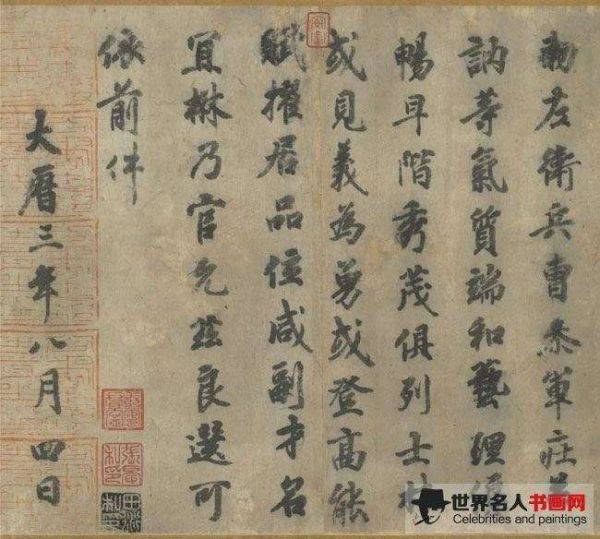 勑左衛兵曹叅軍庄若
訥等氣質端和藝理優
暢早階秀茂俱列士林
或見義為勇或登高能
賦擢居品位咸副才名
宜楙乃官允茲良選可
依前件
大曆三年八月四日
世界名人书画网
Celebrities and paintings